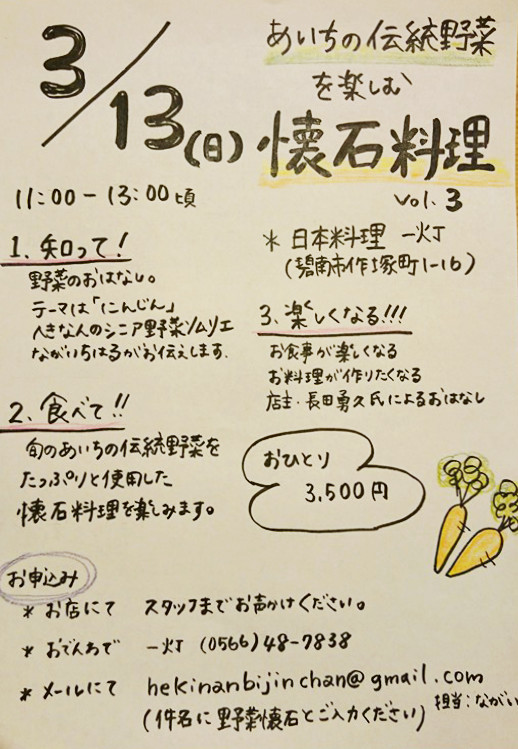 3/13(日)
あいちの伝統野菜
を楽しむ
懐石料理
vol.3
11:00-13:00頃
* 日本料理 一灯
(碧南市作塚町1-16)
1.知って!
野菜のおはなし。
テーマは「にんじん」
へきなん人のシニア野菜ソムリエ
ながいちはるがお伝えします.
2.食べて!!
旬のあいちの伝統野菜を
たっぷりと使用した
懐石料理を楽しみます。
3.楽しくなる!!!
お食事が楽しくなる
お料理が作りたくなる
店主・長田勇久氏によるおはなし
おひとり
3,500円
お申込み
* お店にて スタッフまでお声かけください。
* おでんわで 一灯 (0566)48-7838
* メールにて hekinanbijinchan@gmail.com
(件名に野菜懐石とご入力ください)
担当:ながい